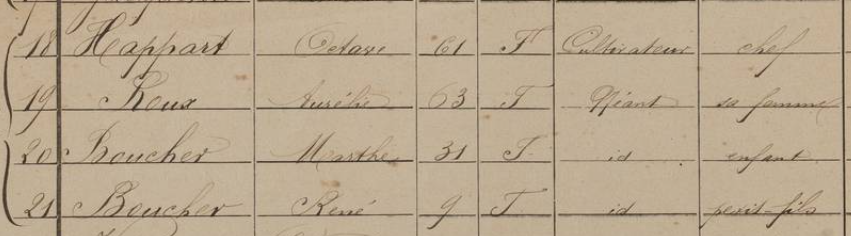 18 Happart Octave 61 F Cultivateur chef
19 Roux Aurélie 63 F Néant sa femme
20 Boucher Marthe 31 F id enfant
21 Boucher René 9 F id petit-fils